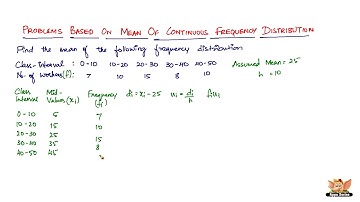 Problems Based On Mean Of Continuous Frequency Distribution
Find the mean of the following frequency distribution
Class-Interval : 0-10 10-20 20-30 30-40 40-50 Assumed Mean = 25
No. of workers (f) : 7 10 15 8 10 h = 10
Class Interval Mid-Values (xi) Frequency (fi) di = xi - 25 ui = di/h fiui
0-10 5 7
10-20 15 10
20-30 25 15
30-40 35 8
40-50 45